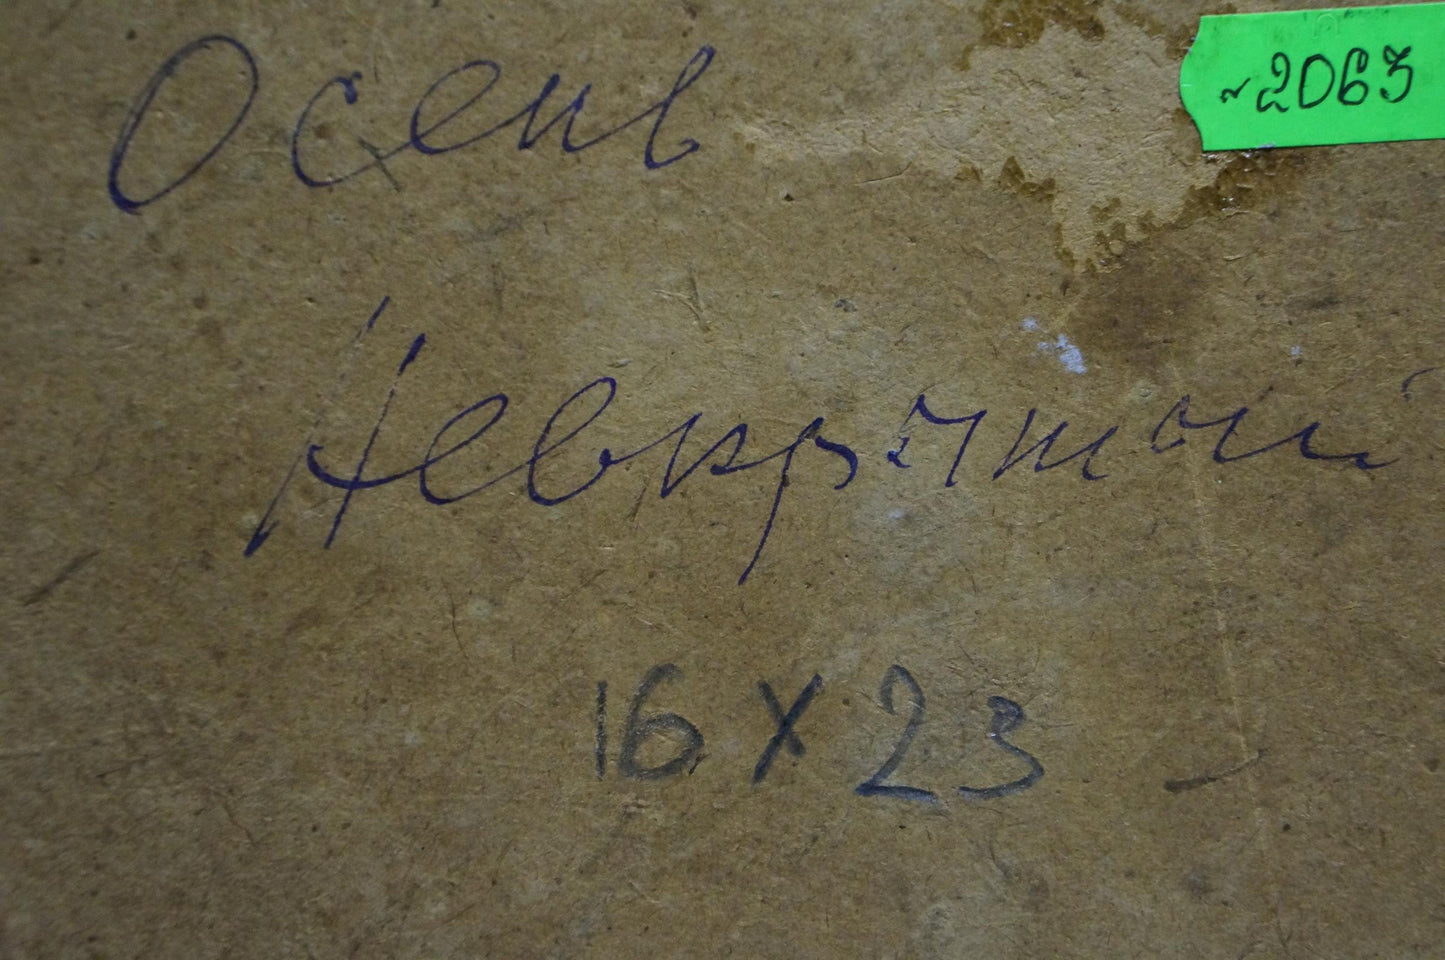 Осень
~2063
Невкрытый
16 х 23